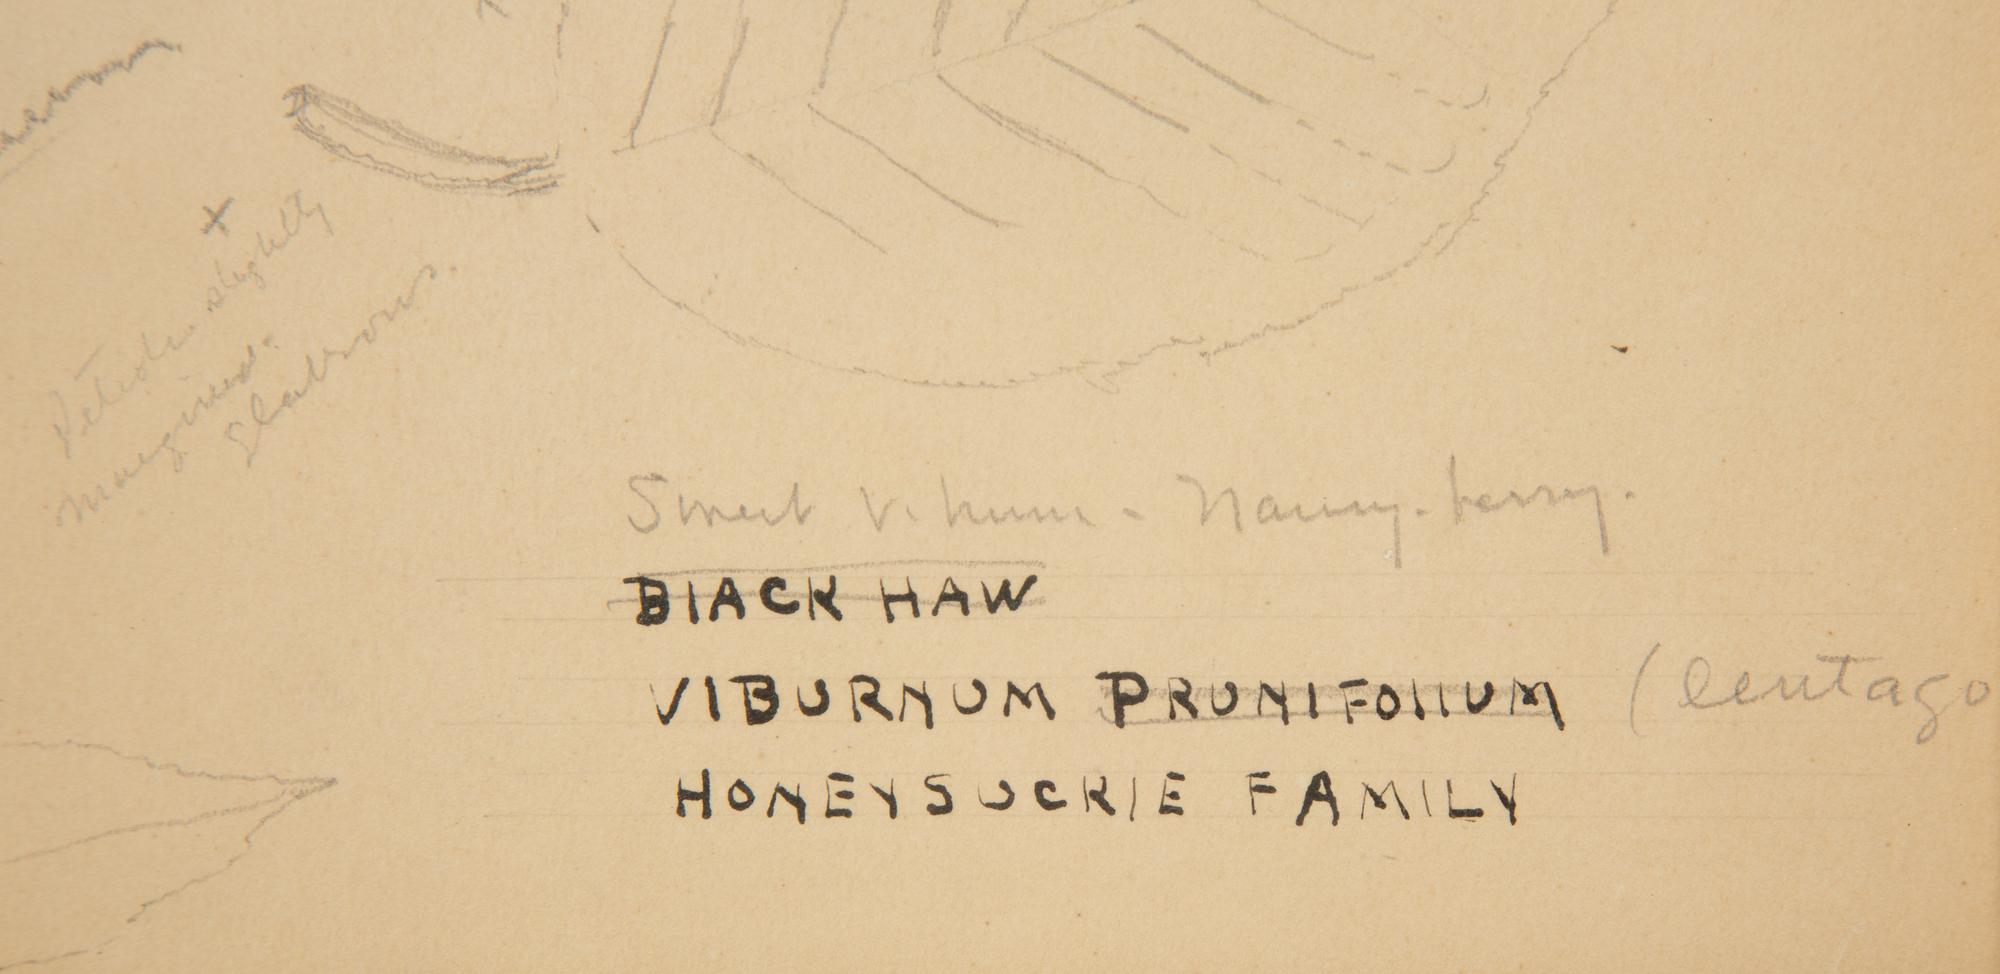 x
Petiole slightly
margined.
glabrous
Sweet Viburnum - Nanny-berry.
BLACK HAW
VIBURNUM PRUNIFOLIUM (lentago
HONEYSUCKLE FAMILY